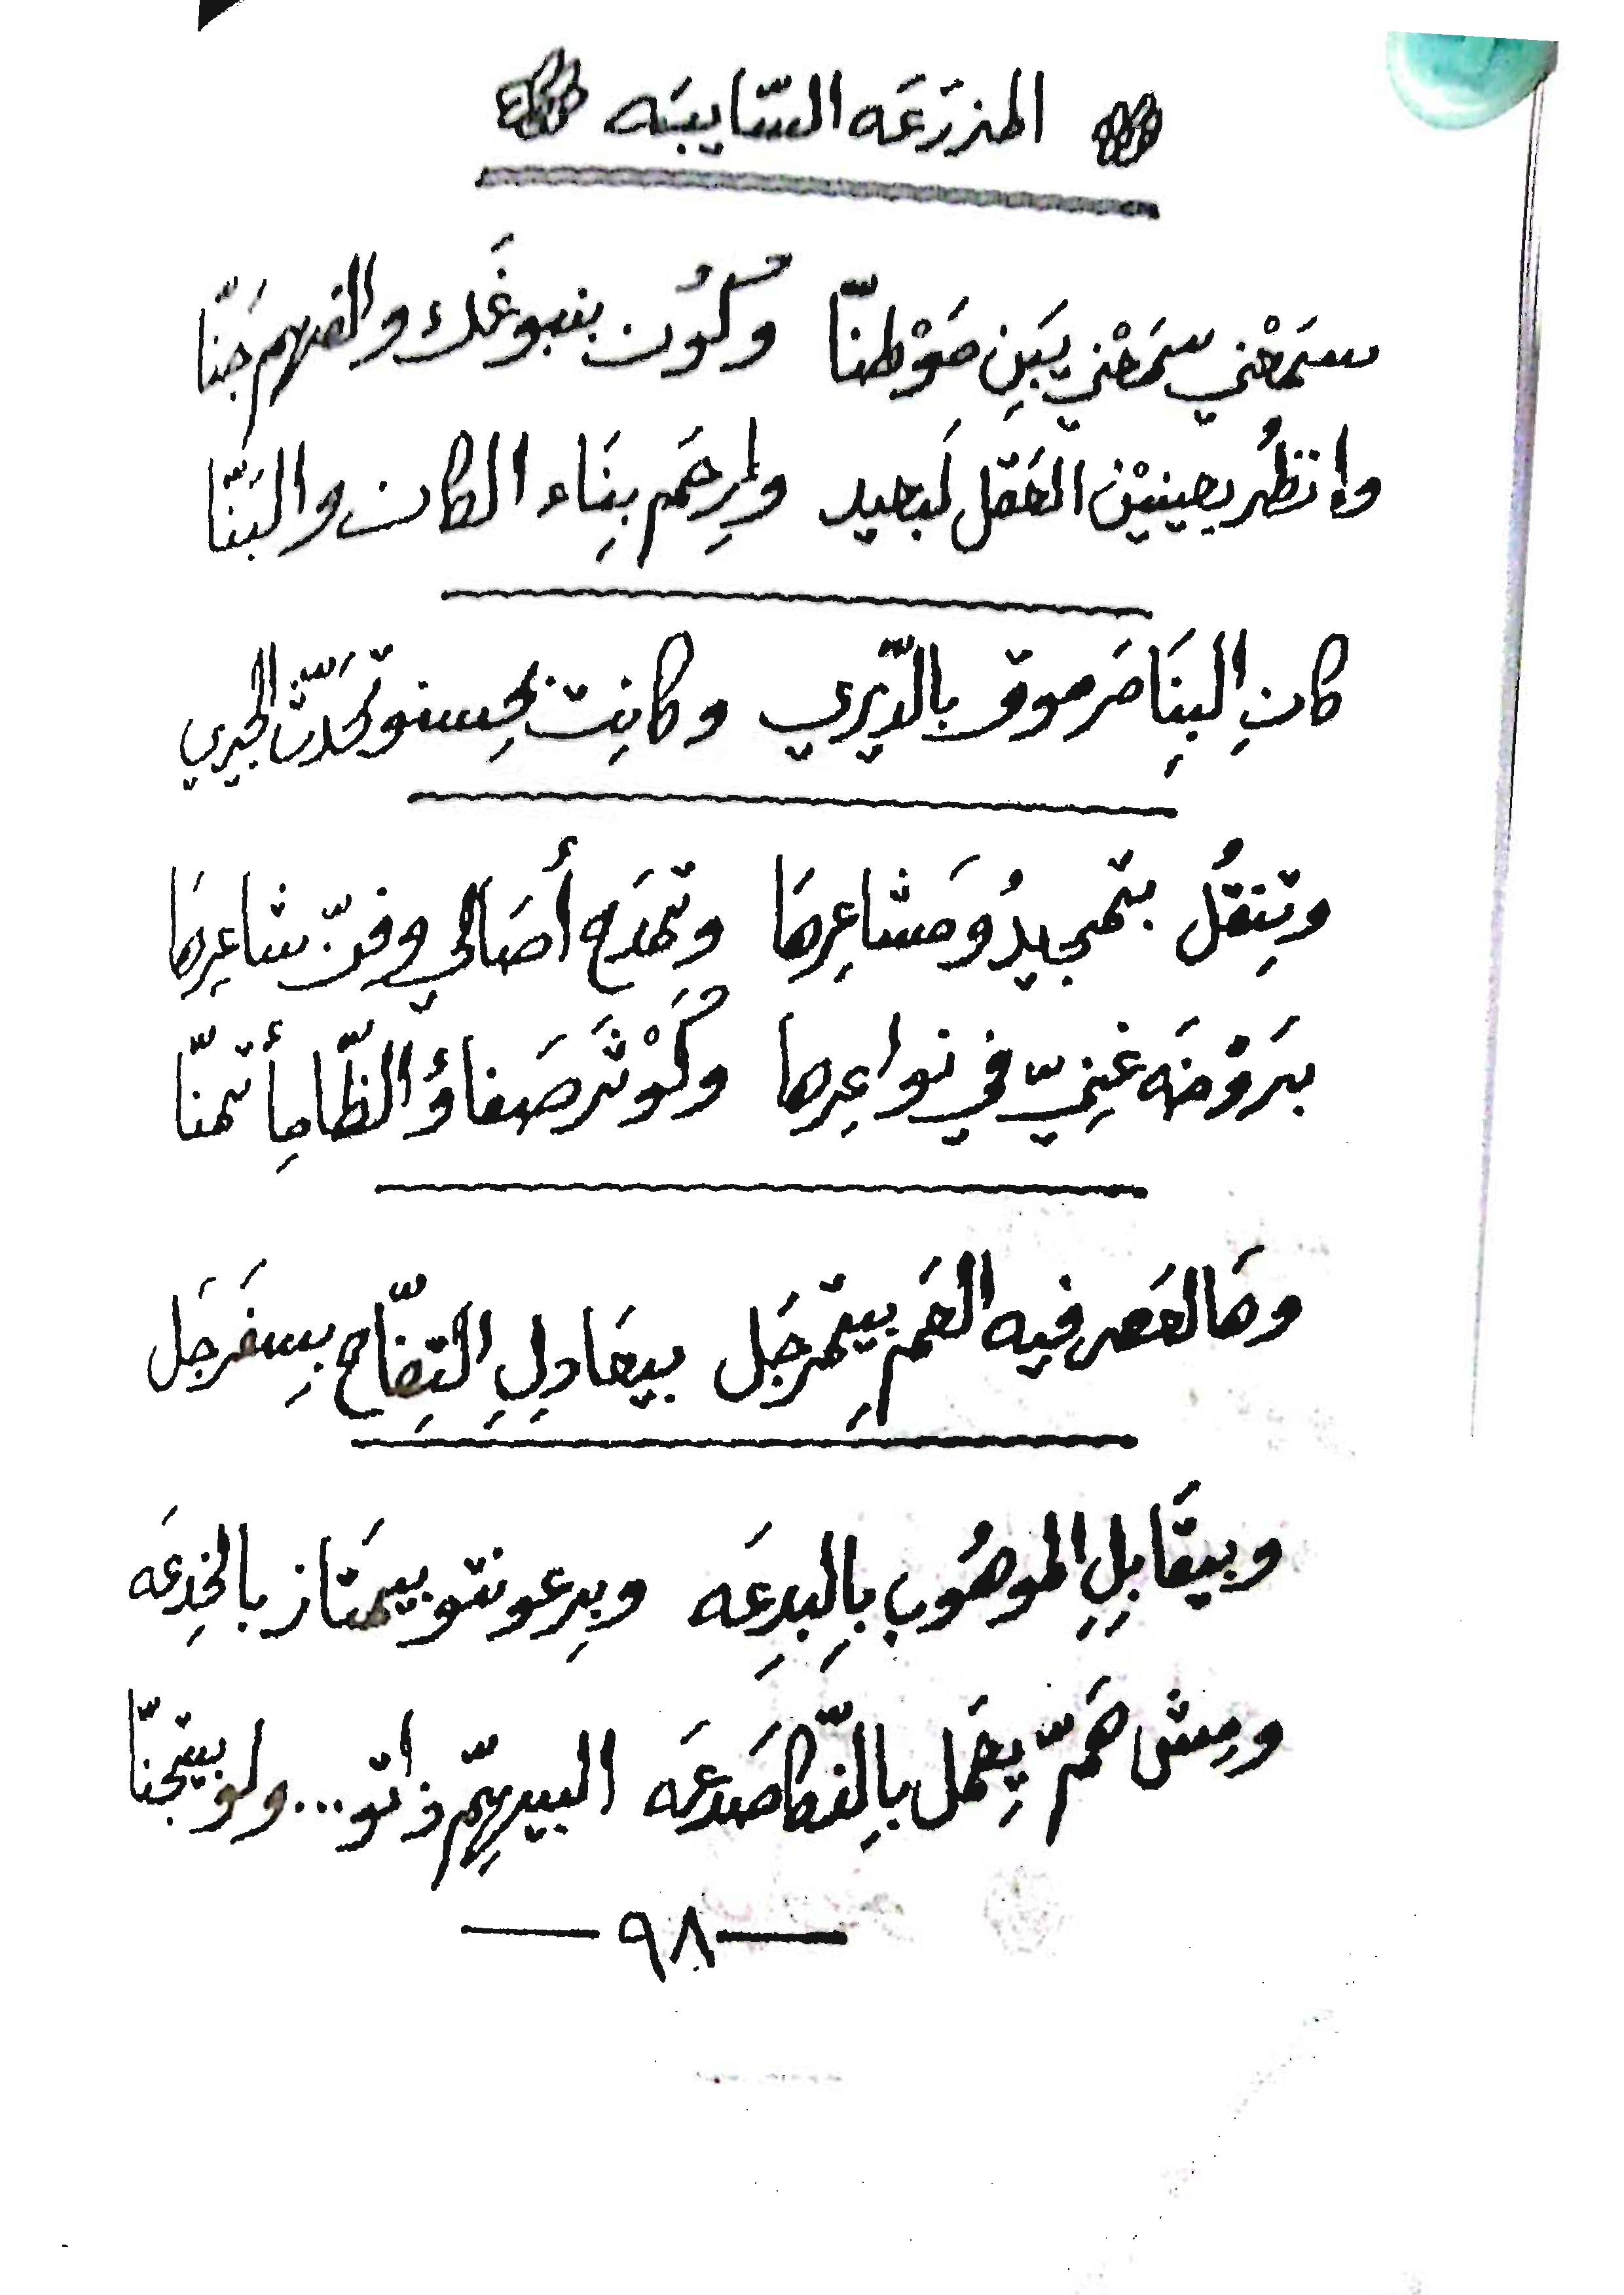 المزرَعَه السّايبَه
سمَعْني سمَعْني يَبنِ مَوْطنّا وكُون بنبوغَك والفهم جَنّا
وانظُر بعينيْن العَقل لَبعيد ولمرحَم بِنَاء الكان والبَنّا
كانِ البِنَا مَرموق بالدّيري وكانِت بحِسنو تحَدّث الجيري
وتِنقُل بتمجيدُو مَشاعِرهَا وتمدَح أصَالي وفنّ شاعِرهَا
برَوضَه غنِيّ في نواعِرها وكَوْثَر صَفاؤُ الظّامِأ تمنّا
وهَالعَصر فيه العَم بيتمرجَل بيعَادلِ التِفّاح بسِفَرجَل
وبيقَابِلِ الموهُوب بِالبِدعَه وبرِعونتو بيمتَاز بالخِدعَه
ومِش هَمّ يعِمَل بالِذّكا صَدعَه البيهِمّ ذاتو... ولو بيتجنّا
٩٨